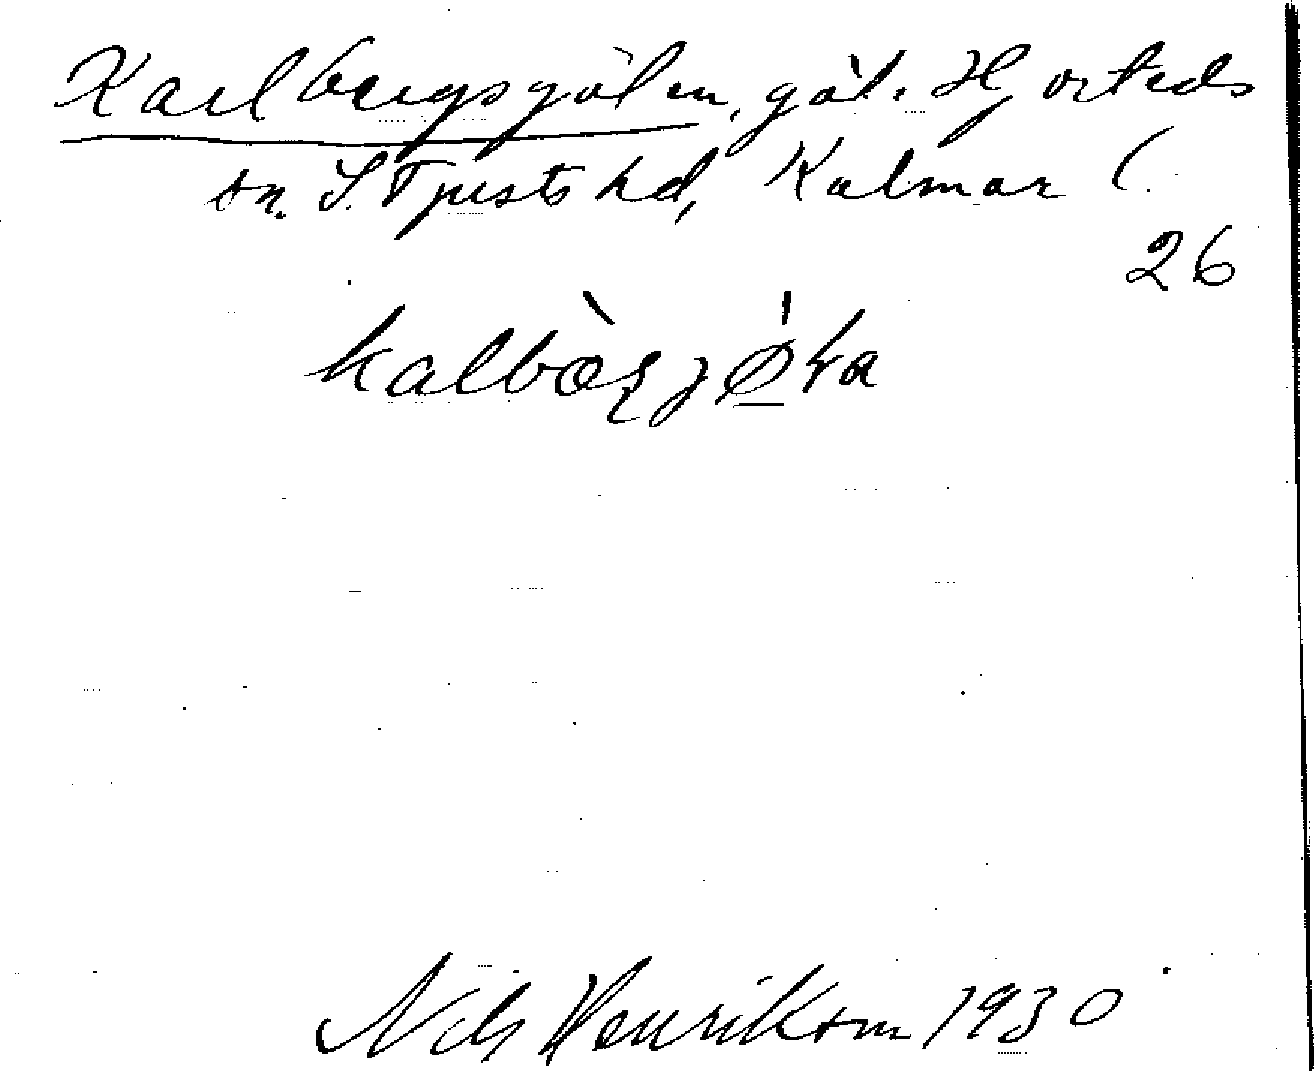 Karlbergsgölen, göl. Hjorteds
sn. S. Tjusts hd, Kalmar l.
26
Nils Henriksson 1930